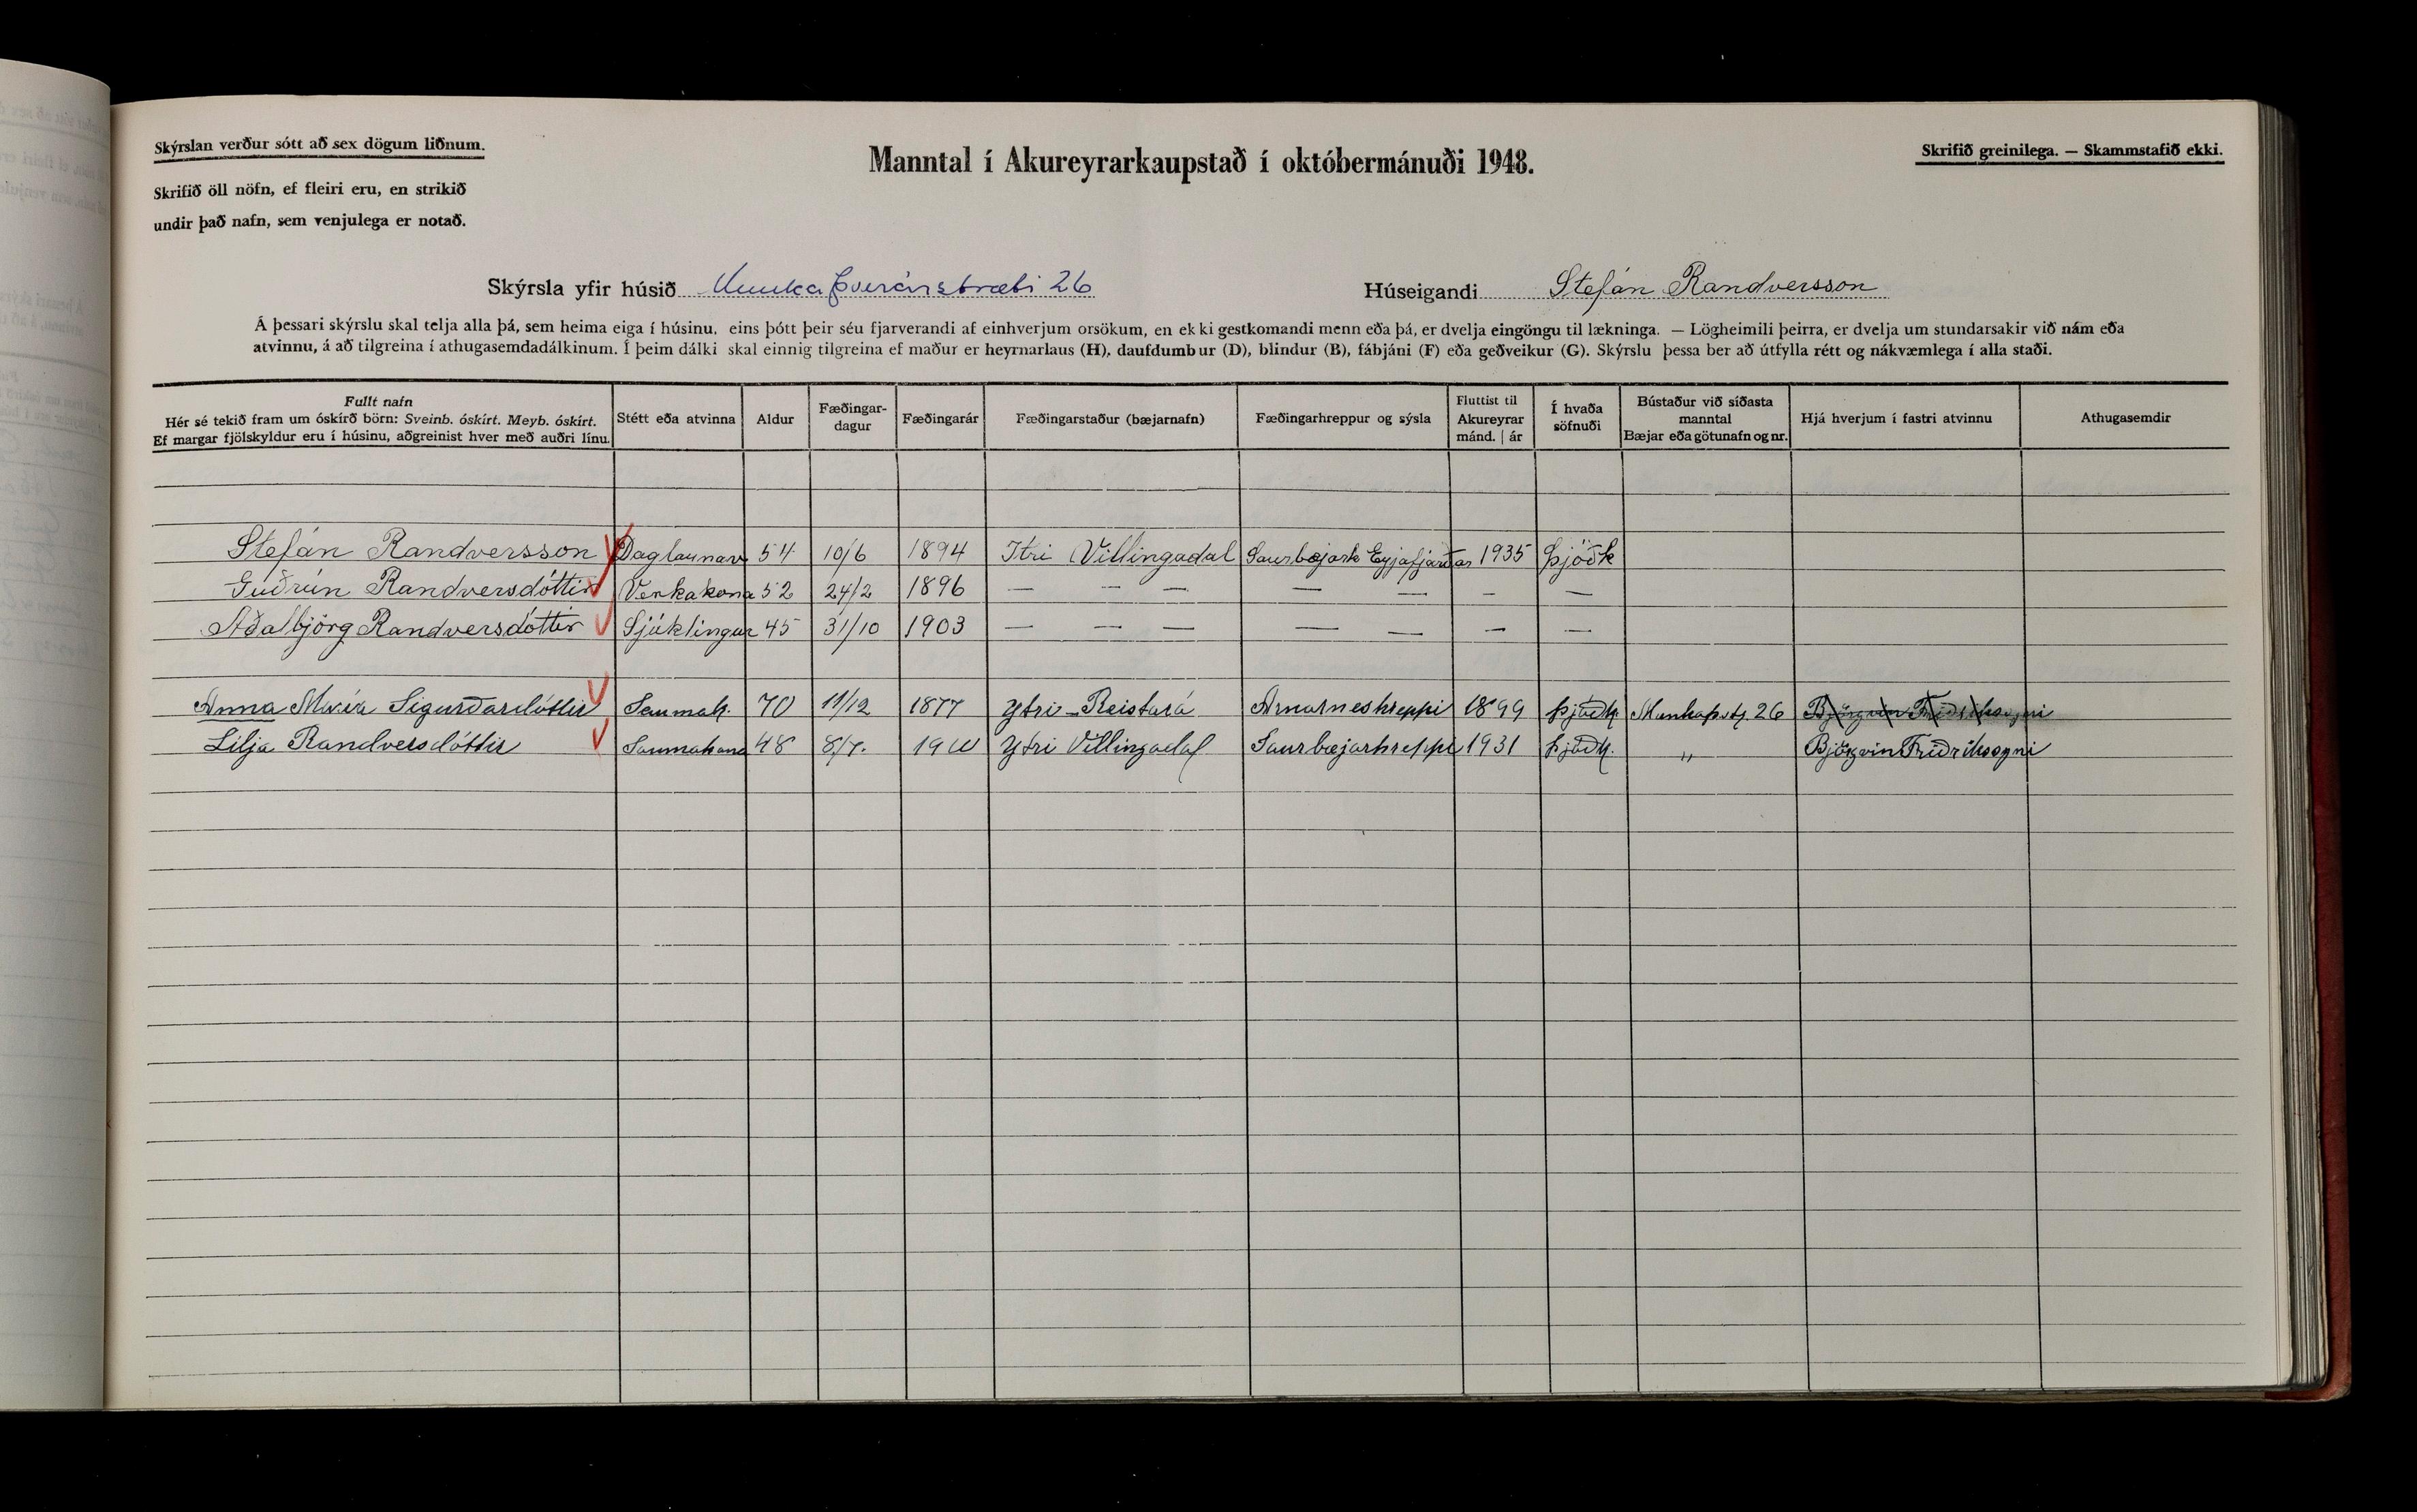 Skýrslan verður sótt að sex dögum liðnum.
Skrifið öll nöfn, ef fleiri eru, en strikið
undir það nafn, sem venjulega er notað.
Manntal í Akureyrarkaupstað í októbermánuði 1948.
Skrifið greinilega. — Skammstafið ekki.
Skýrsla yfir húsið Munkaþverárstræti 26
Húseigandi Stefán Randversson
Á þessari skýrslu skal telja alla þá, sem heima eiga í húsinu, eins þótt þeir séu fjarverandi af einhverjum orsökum, en ekki gestkomandi menn eða þá, er dvelja eingöngu til lækninga. — Lögheimili þeirra, er dvelja um stundarsakir við nám eða
atvinnu, á að tilgreina í athugasemdadálkinum. Í þeim dálki skal einnig tilgreina ef maður er heyrnarlaus (H), daufdumbur (D), blindur (B), fábjáni (F) eða geðveikur (G). Skýrslu þessa ber að útfylla rétt og nákvæmlega í alla staði.
Fullt nafn
Hér sé tekið fram um óskírð börn: Sveinb. óskírt. Meyb. óskírt.
Ef margar fjölskyldur eru í húsinu, aðgreinist hver með auðri línu.
Stétt eða atvinna
Aldur
Fæðingar-
dagur
Fæðingarár
Fæðingarstaður (bæjarnafn)
Fæðingarhreppur og sýsla
Fluttist til
Akureyrar
mánd. | ár
Í hvaða
söfnuði
Bústaður við síðasta
manntal
Bæjar eða götunafn og nr.
Hjá hverjum í fastri atvinnu
Athugasemdir
Stefán Randversson Daglaunam 54 10/6 1894 Itri Villingadal Saurbæjark Eyjafjarðar 1935 Þjóðk
Guðrún Randversdóttir Verkakona 52 24/2 1896 — — — — — — —
Aðalbjörg Randversdóttir Sjúklingur 45 31/10 1903 — — — — — — —
Anna María Sigurðardóttir Saumak. 70 11/12 1877 Ytri-Reistará Arnarneshreppi 1899 Þjóðk. Munkaþvstr. 26 Björgvin Friðrikssyni
Lilja Randversdóttir Saumakona 48 8/7. 1900 Ytri Villingadal Saurbæjarhreppi 1931 Þjóðk. " Björgvin Friðrikssyni